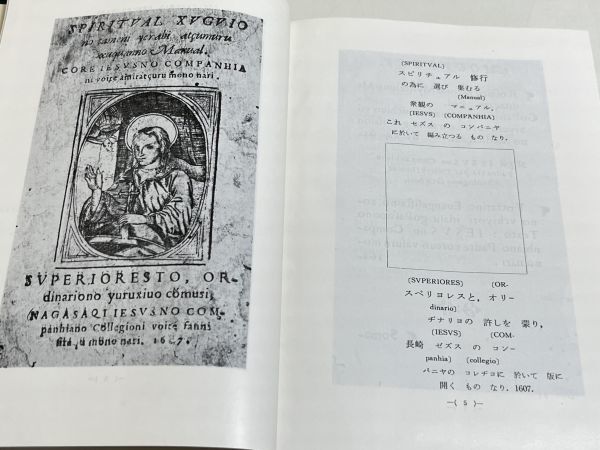 SPIRITVAL XVGVIO
no tameni yerabi atçumuru
xuquanno Manual.
CORE IESVSNO COMPANHIA
ni voite amitatçuru mono nari.
SVPERIORESTO, OR-
dinariono yuruxiuo cŏmuri,
NAGASAQI IESVSNO COM-
panhiano Collegioni voite fanni
firaqu mono nari. 1607.
(SPIRITVAL)
スピリチュアル 修行
の為に 選び 集むる
(Manual)
衆観の マニュアル,
(IESVS) (COMPANHIA)
これ ゼズス の コンパニヤ
に於いて 編み立つる もの なり.
(SVPERIORES) (OR-
スペリヨレスと, オリー
dinario)
ヂナリヨの 許しを 蒙り,
(IESVS) (COM-
長崎 ゼズス の コン—
panhia) (collegio)
パニヤの コレヂヨに 於いて 版に
開く もの なり. 1607.
—( 5 )—